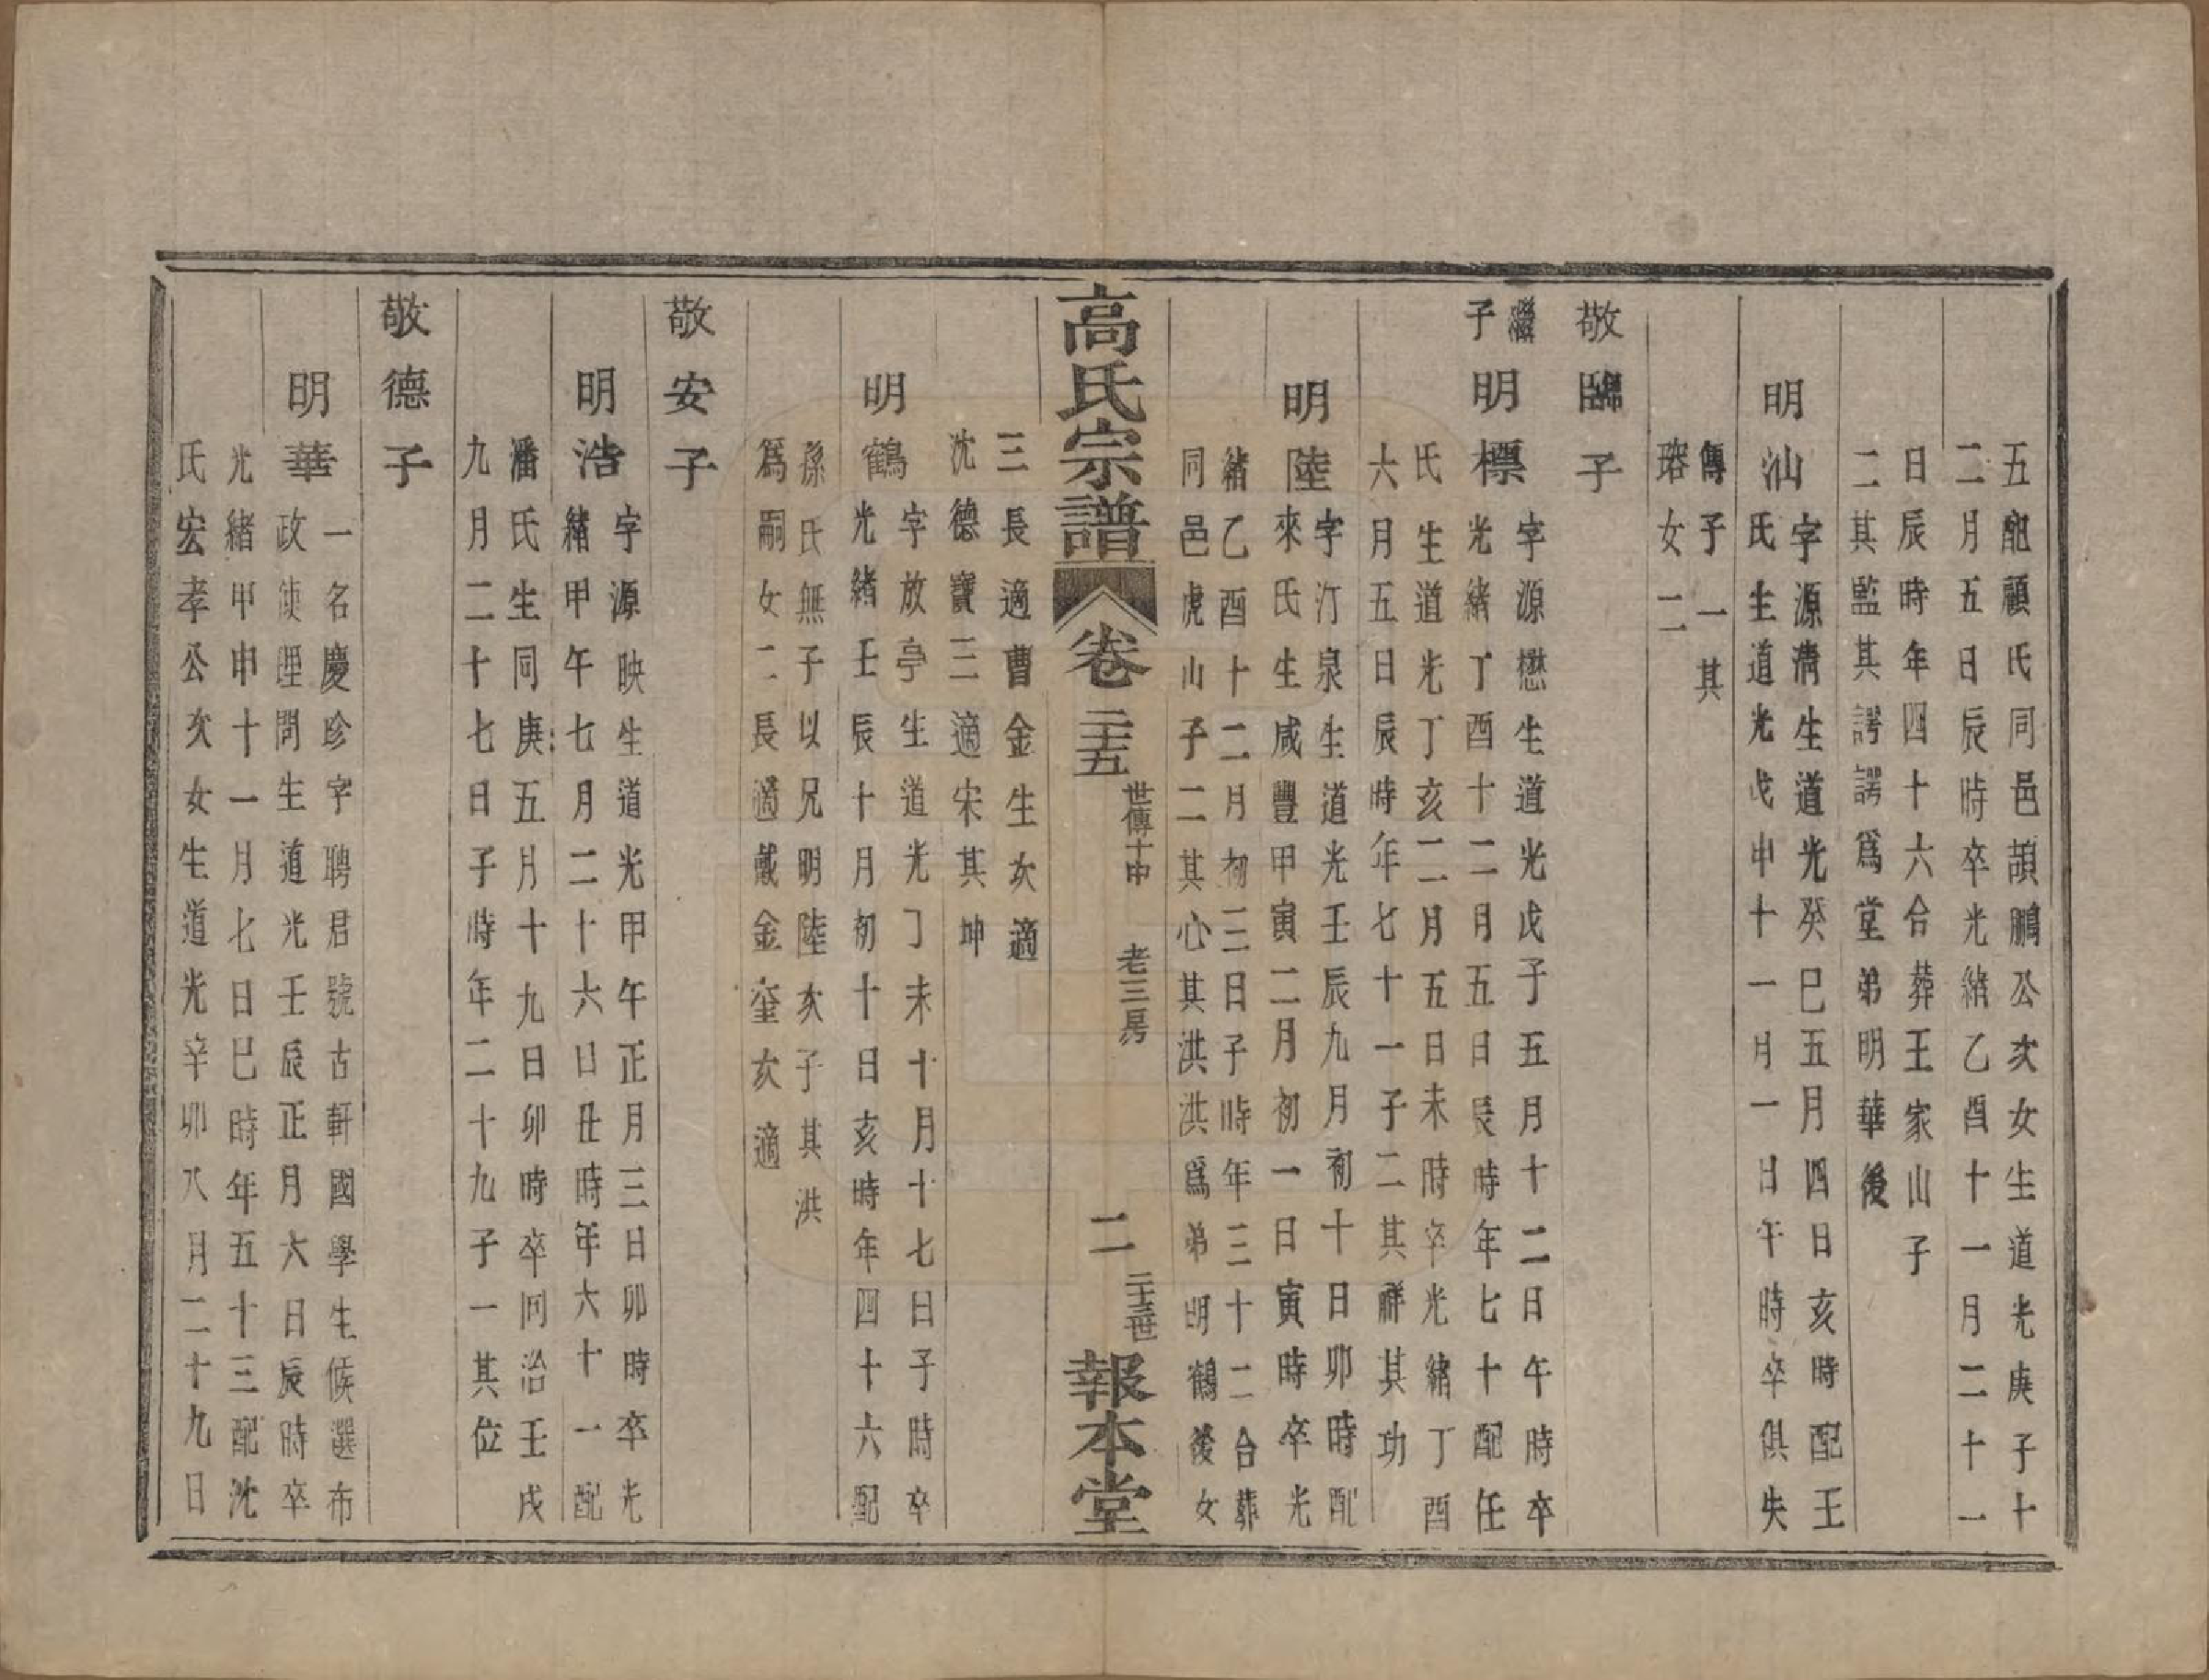 五配顧氏同邑頡鵬公次女生道光庚子十
二月五日辰時卒光緒乙酉十一月二十一
日辰時年四十六合葬王家山子
二其監其諤諤爲堂弟明華後
明汕
字源淸生道光癸巳五月四日亥時配王
氏生道光戊申十一月一日午時卒俱失
傳子一其
瑢女二
敬歸子
繼子
明標
字源懋生道光戊子五月十二日午時卒
光緒丁酉十二月五日辰時年七十配任
氏生道光丁亥二月五日未時卒光緒丁酉
六月五日辰時年七十一子二其祥其功
明陸
字汀泉生道光壬辰九月初十日卯時配
來氏生咸豐甲寅二月初一日寅時卒光
緒乙酉十二月初三日子時年三十二合葬
同邑虎山子二其心其洪洪爲弟明鶴後女
高氏宗譜
卷二十五
世傳十中
老三房
二
二十三世
報本堂
三長適曹金生次適
沈德寶三適宋其坤
明鶴
字放亭生道光丁未十月十七日子時卒
光緒壬辰十月初十日亥時年四十六配
孫氏無子以兄明陸次子其洪
爲嗣女二長適戴金奎次適
敬安子
明浩
字源映生道光甲午正月三日卯時卒光
緒甲午七月二十六日丑時年六十一配
潘氏生同庚五月十九日卯時卒同治壬戌
九月二十七日子時年二十九子一其位
敬德子
明華
一名慶珍字聘君號古軒國學生候選布
政使理問生道光壬辰正月六日辰時卒
光緒甲申十一月七日巳時年五十三配沈
氏宏孝公次女生道光辛卯八月二十九日